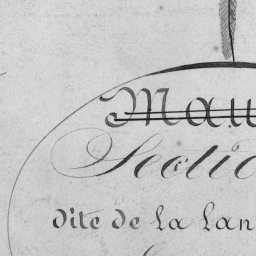 Mau
Sectio
dite de la lan